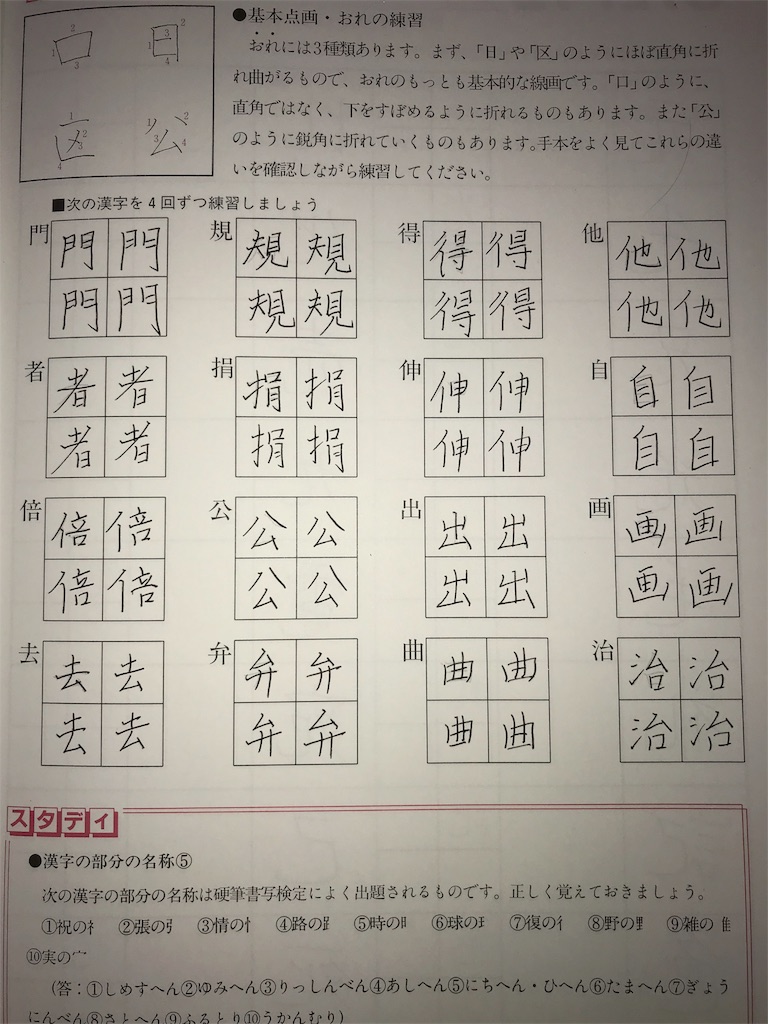 ●基本点画・おれの練習
おれには3種類あります。まず、「日」や「区」のようにほぼ直角に折
れ曲がるもので、おれのもっとも基本的な線画です。「口」のように、
直角ではなく、下をすぼめるように折れるものもあります。また「公」
のように鋭角に折れていくものもあります。手本をよく見てこれらの違
いを確認しながら練習してください。
口 日
区 公
■次の漢字を4回ずつ練習しましょう
門 門門 規 規規 得 得得 他 他他
門門 規規 得得 他他
者 者者 捐 捐捐 伸 伸伸 自 自自
者者 捐捐 伸伸 自自
倍 倍倍 公 公公 出 出出 画 画画
倍倍 公公 出出 画画
去 去去 弁 弁弁 曲 曲曲 治 治治
去去 弁弁 曲曲 治治
スタディ
●漢字の部分の名称⑤
次の漢字の部分の名称は硬筆書写検定によく出題されるものです。正しく覚えておきましょう。
①祝の礻 ②張の弓 ③情の忄 ④路の𧾷 ⑤時の日 ⑥球の王 ⑦復の彳 ⑧野の里 ⑨雑の隹
⑩実の宀
(答：①しめすへん②ゆみへん③りっしんべん④あしへん⑤にちへん・ひへん⑥たまへん⑦ぎょう
にんべん⑧さとへん⑨ふるとり⑩うかんむり)